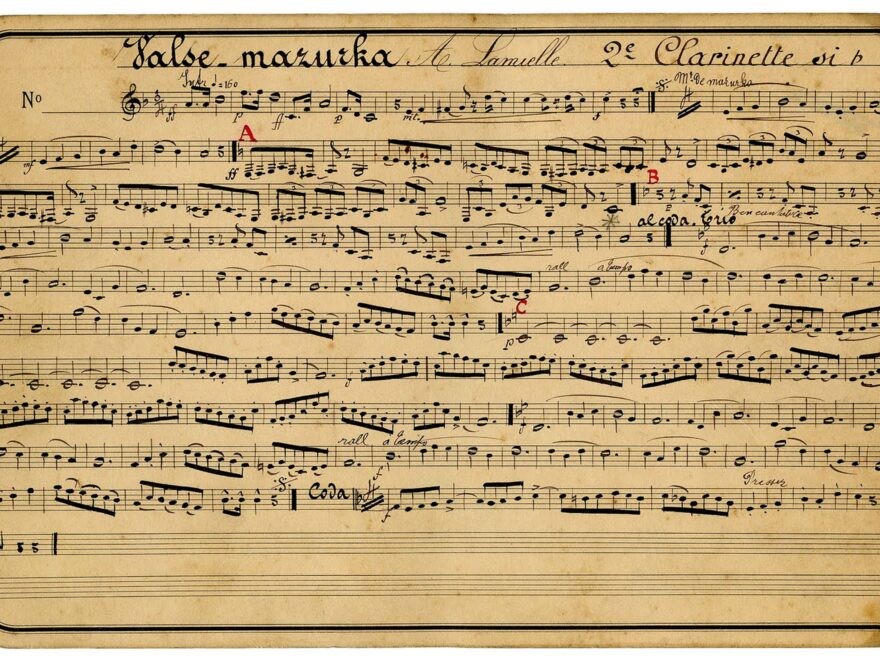 Valse-mazurka A. Lamielle. 2e Clarinette si b
Nº
Intr ♩=160
ff
p
ff
p
Mt. De mazurka
mf
A
ff
B
al coda. Trio
Ben cantabile
rall a Tempo
C
p
rall a Tempo
Coda
f
Pressez